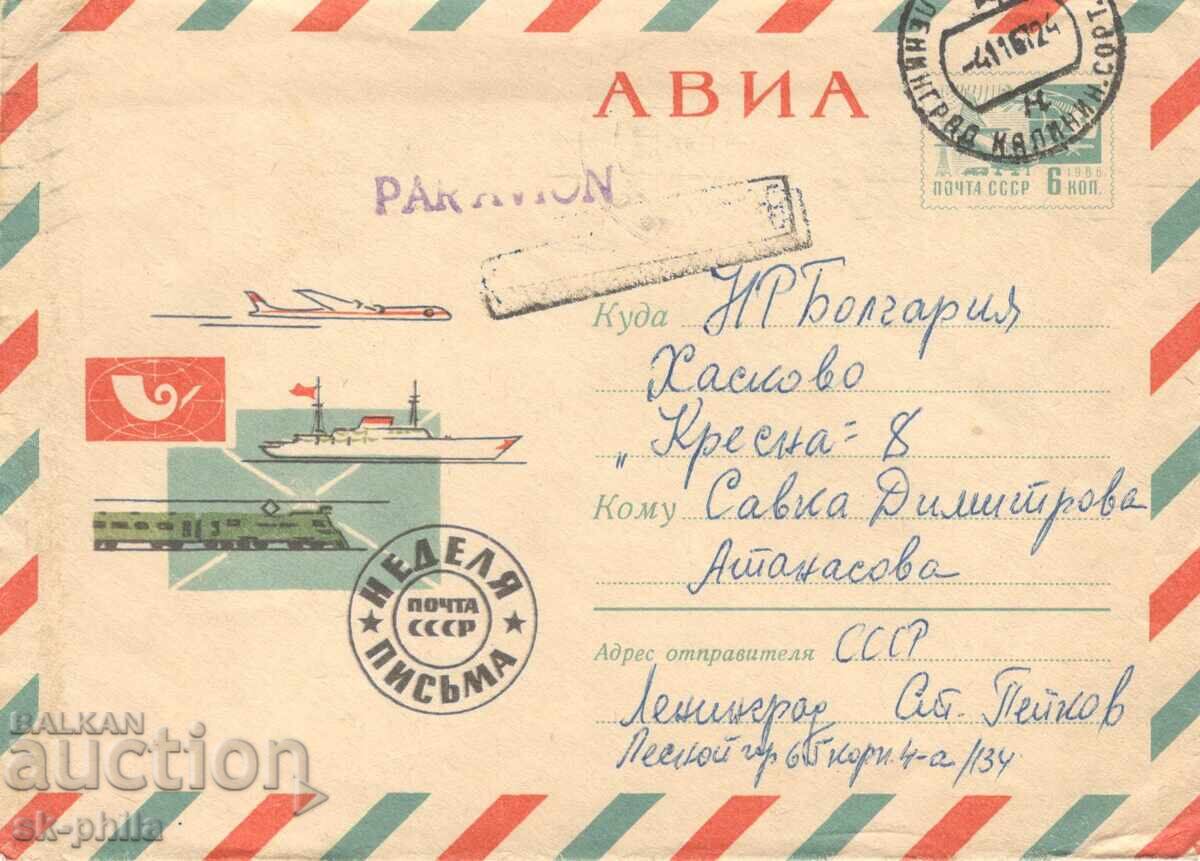 АВИА
ЛЕНИНГРАД КАЛИНИН. СОРТ.
-4 11 67 24
1966
ПОЧТА СССР 6 КОП.
PAR AVION
Куда НР Болгария
Хасково
„Кресна" 8
Кому Савка Димитрова
Атанасова
НЕДЕЛЯ ПИСЬМА
ПОЧТА
СССР
Адрес отправителя СССР
Ленинград Ст. Пейков
корп. 4-а/134
BALKAN
auction
sk-phila